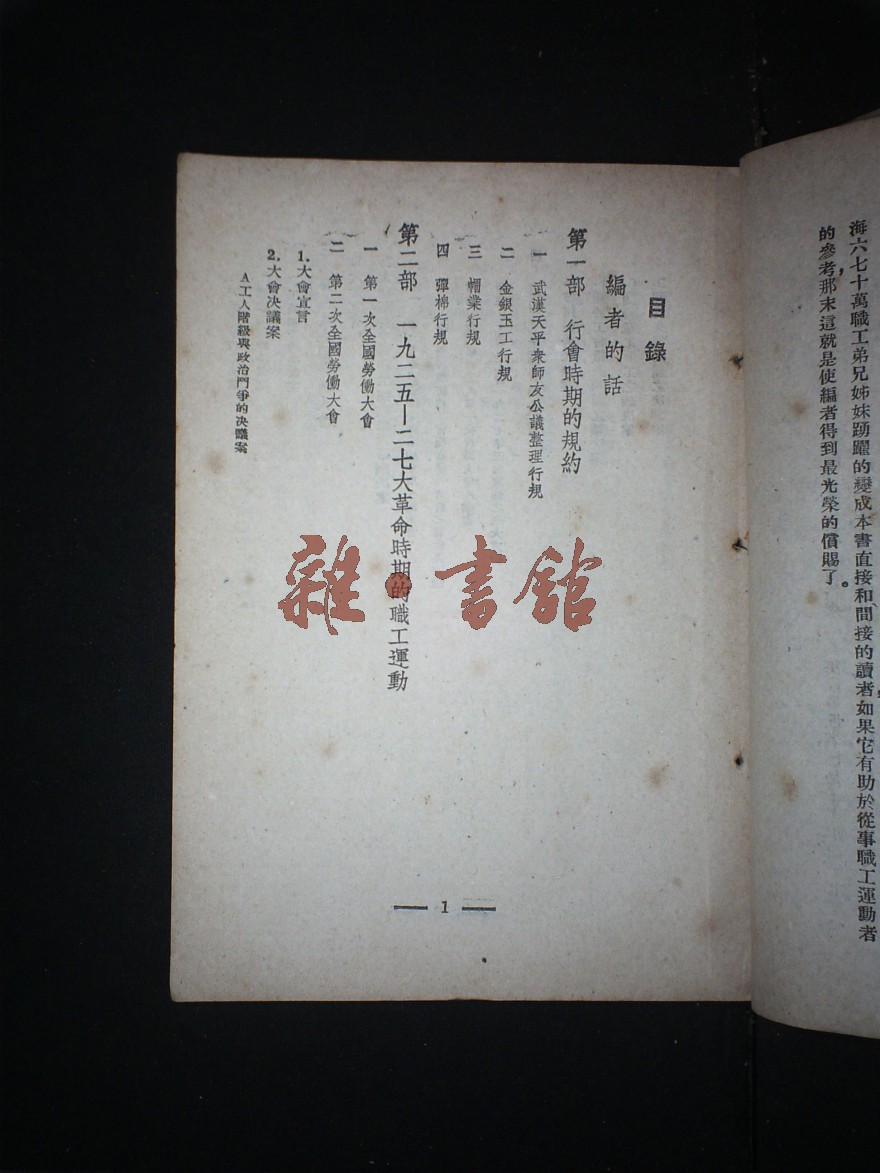 海六七十萬職工弟兄姊妹踴躍的變成本書直接和間接的讀者,如果它有助於從事職工運動者
的參考,那末這就是使編者得到最光榮的償賜了。
目錄
編者的話
第一部 行會時期的規約
一 武漢天平衆師友公議整理行規
二 金銀玉工行規
三 帽業行規
四 彈棉行規
第二部 一九二五—二七大革命時期的職工運動
一 第一次全國勞働大會
二 第二次全國勞働大會
1.大會宣言
2.大會决議案
A工人階級與政治鬥爭的决議案
— 1 —
雜·書館